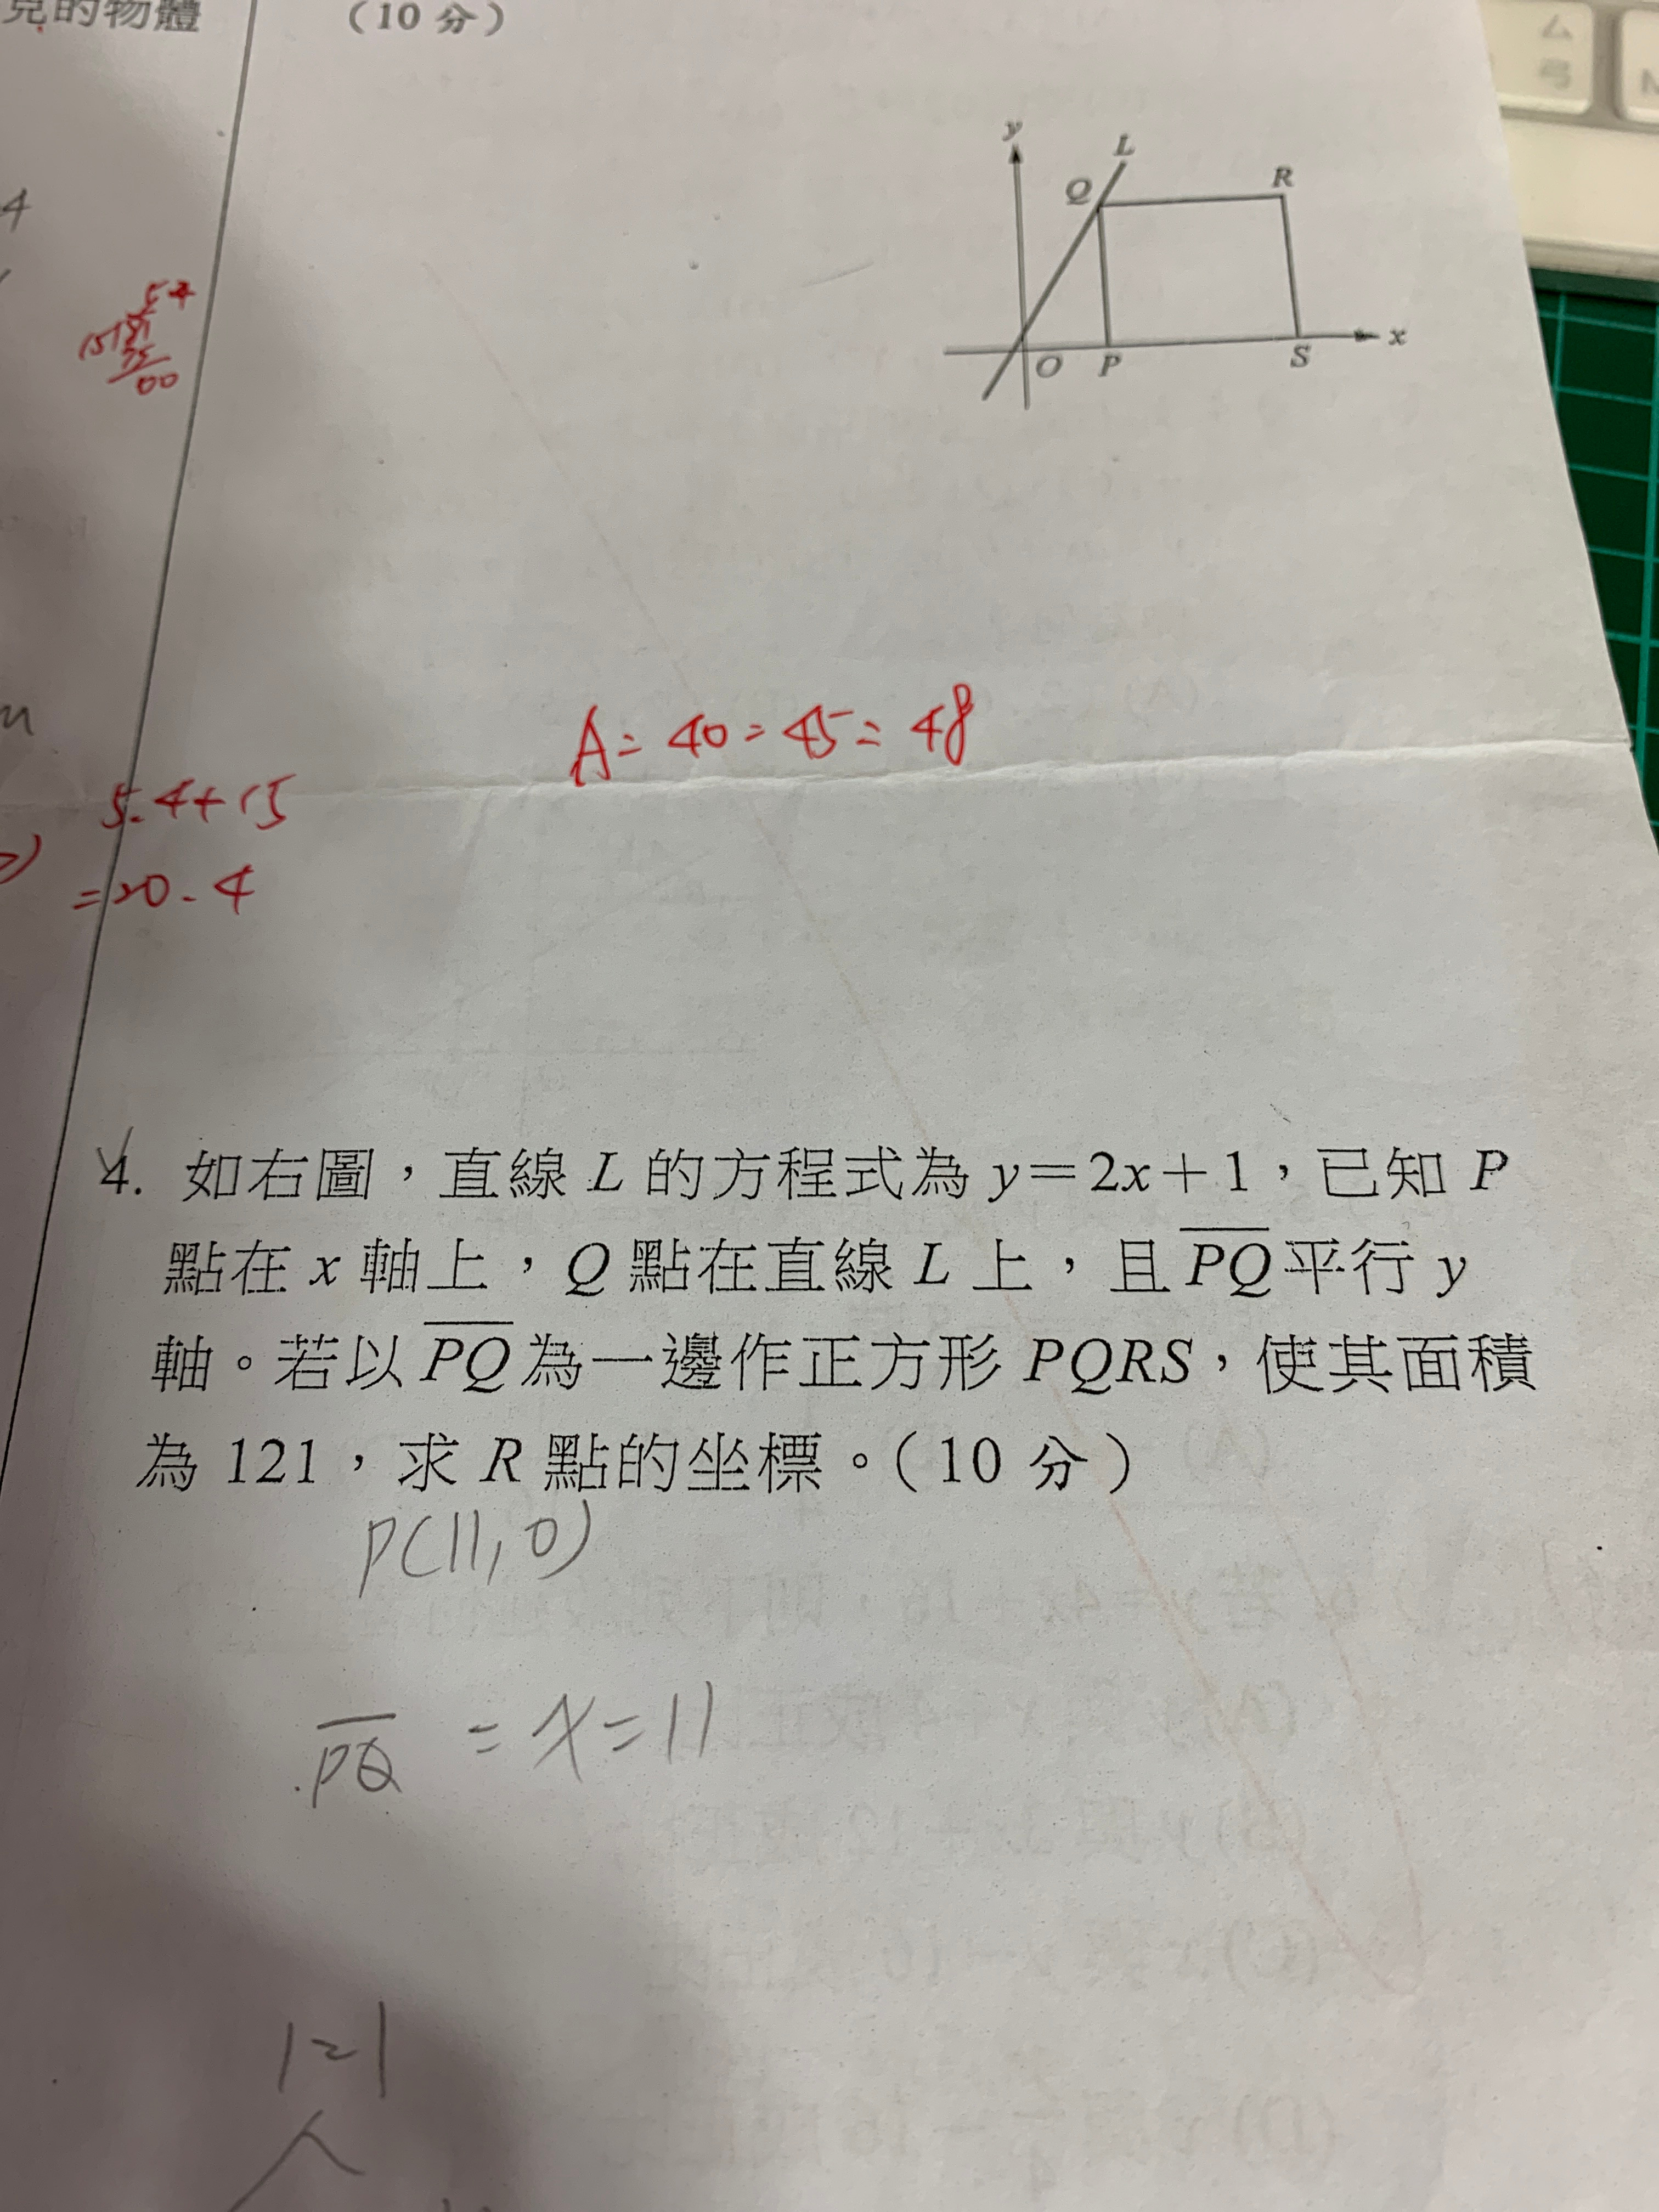 克的物體
(10 分)
ㄙ
弓
y
L
Q
R
x
O
P
S
4
5.4
00
A = 40 = 45 = 48
5.4+15
=20.4
4. 如右圖，直線 L 的方程式為 y=2x+1，已知 P
點在 x 軸上，Q 點在直線 L 上，且PQ平行 y
軸。若以PQ為一邊作正方形 PQRS，使其面積
為 121，求 R 點的坐標。(10 分)
P(11,0)
PQ = x=11
121